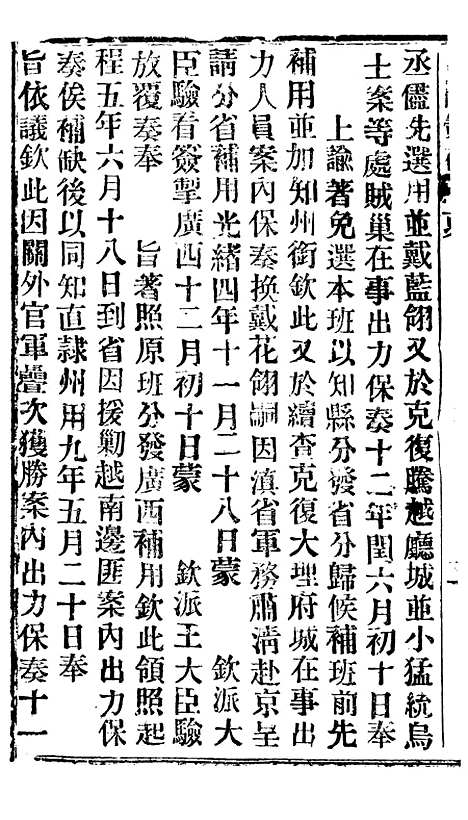 丞儘先選用並戴藍翎又於克復騰越廳城並小猛統烏
士寨等處賊巢在事出力保奏十二年閏六月初十日奉
上諭著免選本班以知縣分發省分歸候補班前先
補用並加知州銜欽此又於續查克復大理府城在事出
力人員案內保奏換戴花翎嗣因滇省軍務肅清赴京呈
請分省補用光緒四年十一月二十八日蒙 欽派大
臣驗看簽掣廣西十二月初十日蒙 欽派王大臣驗
放覆奏奉 旨著照原班分發廣西補用欽此領照起
程五年六月十八日到省因援勦越南邊匪案內出力保
奏俟補缺後以同知直隸州用九年五月二十日奉
旨依議欽此因關外官軍疊次獲勝案內出力保奏十一